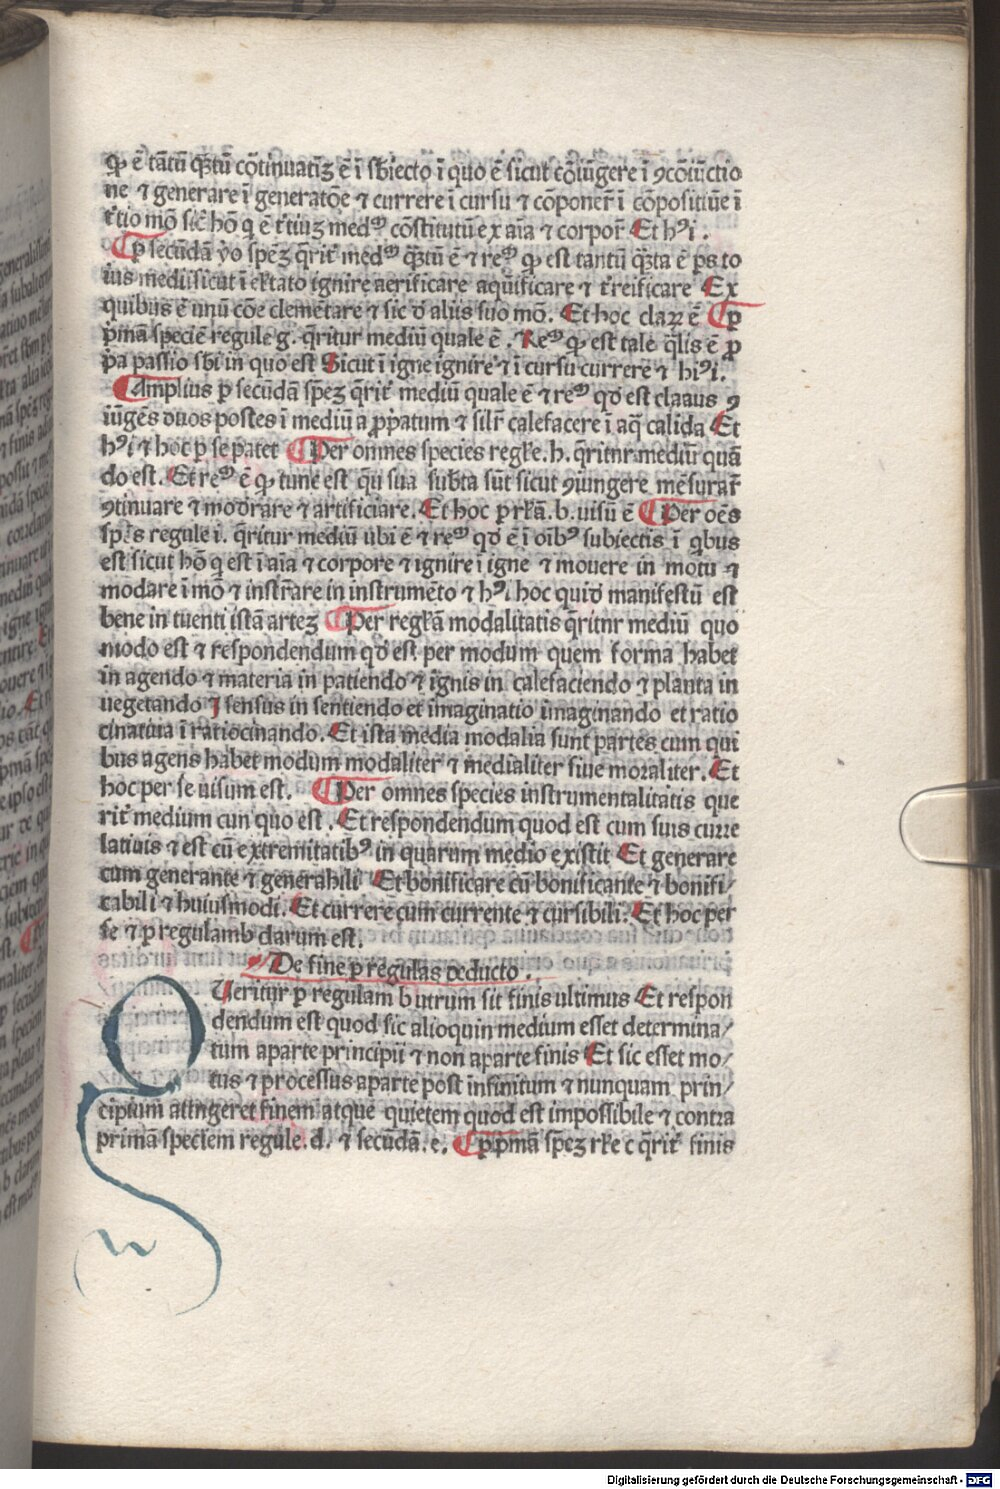 ꝙ ē tātū q̄ꝫtū cōtinuatiꝫ ē ī sbiecto ī quo ē sicut cōiūgere ī ꝯcōiūctio
ne ⁊ generare ī generatōe ⁊ currere ī cursu ⁊ cōponer̄ ī cōpositiūe ī
t̄tio mō sic̄ hō q ē t̄tiuꝫ medꝰ cōstitutū ex aīa ⁊ corpor̄ Et hꝰi.
¶ p secūdā vo spēꝫ q̄rit̄ medꝰ q̄ꝫtū ē ⁊ reꝰ ꝙ est tantū q̄ꝫta ē ps to
ius mediisicut ī ektato ignire aerificare aquificare ⁊ t̄reificare Ex
quibus ē unū cōe elemētare ⁊ sic d̄ aliis suo mō. Et hoc claꝝ ē ¶ p
pmā speciē regule g. q̄ritur mediū quale ē. Reꝰ ꝙ est tale q̄lis ē ꝓ
p̄a passio sbi in quo est Sicut ī igne ignire ⁊ ī cursu currere ⁊ hiꝰi.
¶ Amplius p secūdam spēꝫ q̄rit̄ mediū quale ē ⁊ reꝰ qd̄ est claaus ꝯ
iūgēs duos postes ī mediū a ꝓp̄patum ⁊ silr̄ calefacere ī aq̄ calida Et
hꝰi ⁊ hoc p se patet ¶ Per omnes species regl̄e. h. q̄ritnr mediū quā
do est. Et reꝰ ē ꝙ tunc est qn̄ sua subta sūt sicut ꝯiungere mēsurar̄
ꝯtinuare ⁊ modrare ⁊ artificiare. Et hoc p rl̄ā. b. uisū ē ¶ Per oēs
spēs regule i. q̄ritur mediū ubi ē ⁊ reꝰ qd̄ ē ī oibꝰ subiectis ī qbus
est sicut hō q est ī aīa ⁊ corpore ⁊ ignire ī igne ⁊ mouere in motu ⁊
modare ī mō ⁊ instr̄are in instrumēto ⁊ hꝰi hoc quid manifestū est
bene in tuenti istā arteꝫ ¶ Per regl̄ā modalitatis q̄ritnr mediū quo
modo est ⁊ respondendum qd̄ est per modum quem forma habet
in agendo ⁊ materia in patiendo ⁊ ignis in calefaciendo ⁊ planta in
uegetando ⁊ sensus in sentiendo et imaginatio imaginando et ratio
cinatiua ī ratiocinando. Et ista media modalia sunt partes cum qui
bus agens habet modum modaliter ⁊ medialiter siue moraliter. Et
hoc per se uisum est. ¶ Per omnes species instrumentalitatis que
rit̄ medium cun quo est. Et respondendum quod est cum suis curre
latiuis ⁊ est cū extremitatibꝰ in quarum medio existit Et generare
cum generante ⁊ generabili Et bonificare cū bonificante ⁊ bonifi/
cabili ⁊ huiusmodi. Et currere cum currente ⁊ cursibili. Et hoc per
se ⁊ p regulamb darum est.
De fine p regulas deducto.
QUeritur p regulam b utrum sit finis ultimus Et respon
dendum est quod sic alioquin medium esset determina/
tum aparte principii ⁊ non aparte finis Et sic esset mo/
tus ⁊ processus aparte post infinitum ⁊ nunquam prin/
cipium attngeret finem atque quietem quod est impossibile ⁊ contra
primā speciem regule. d. ⁊ secūdā. e. ¶ p pmā spēꝫ rl̄e c q̄rit̄ finis
Digitalisierung gefördert durch die Deutsche Forschungsgemeinschaft - DFG